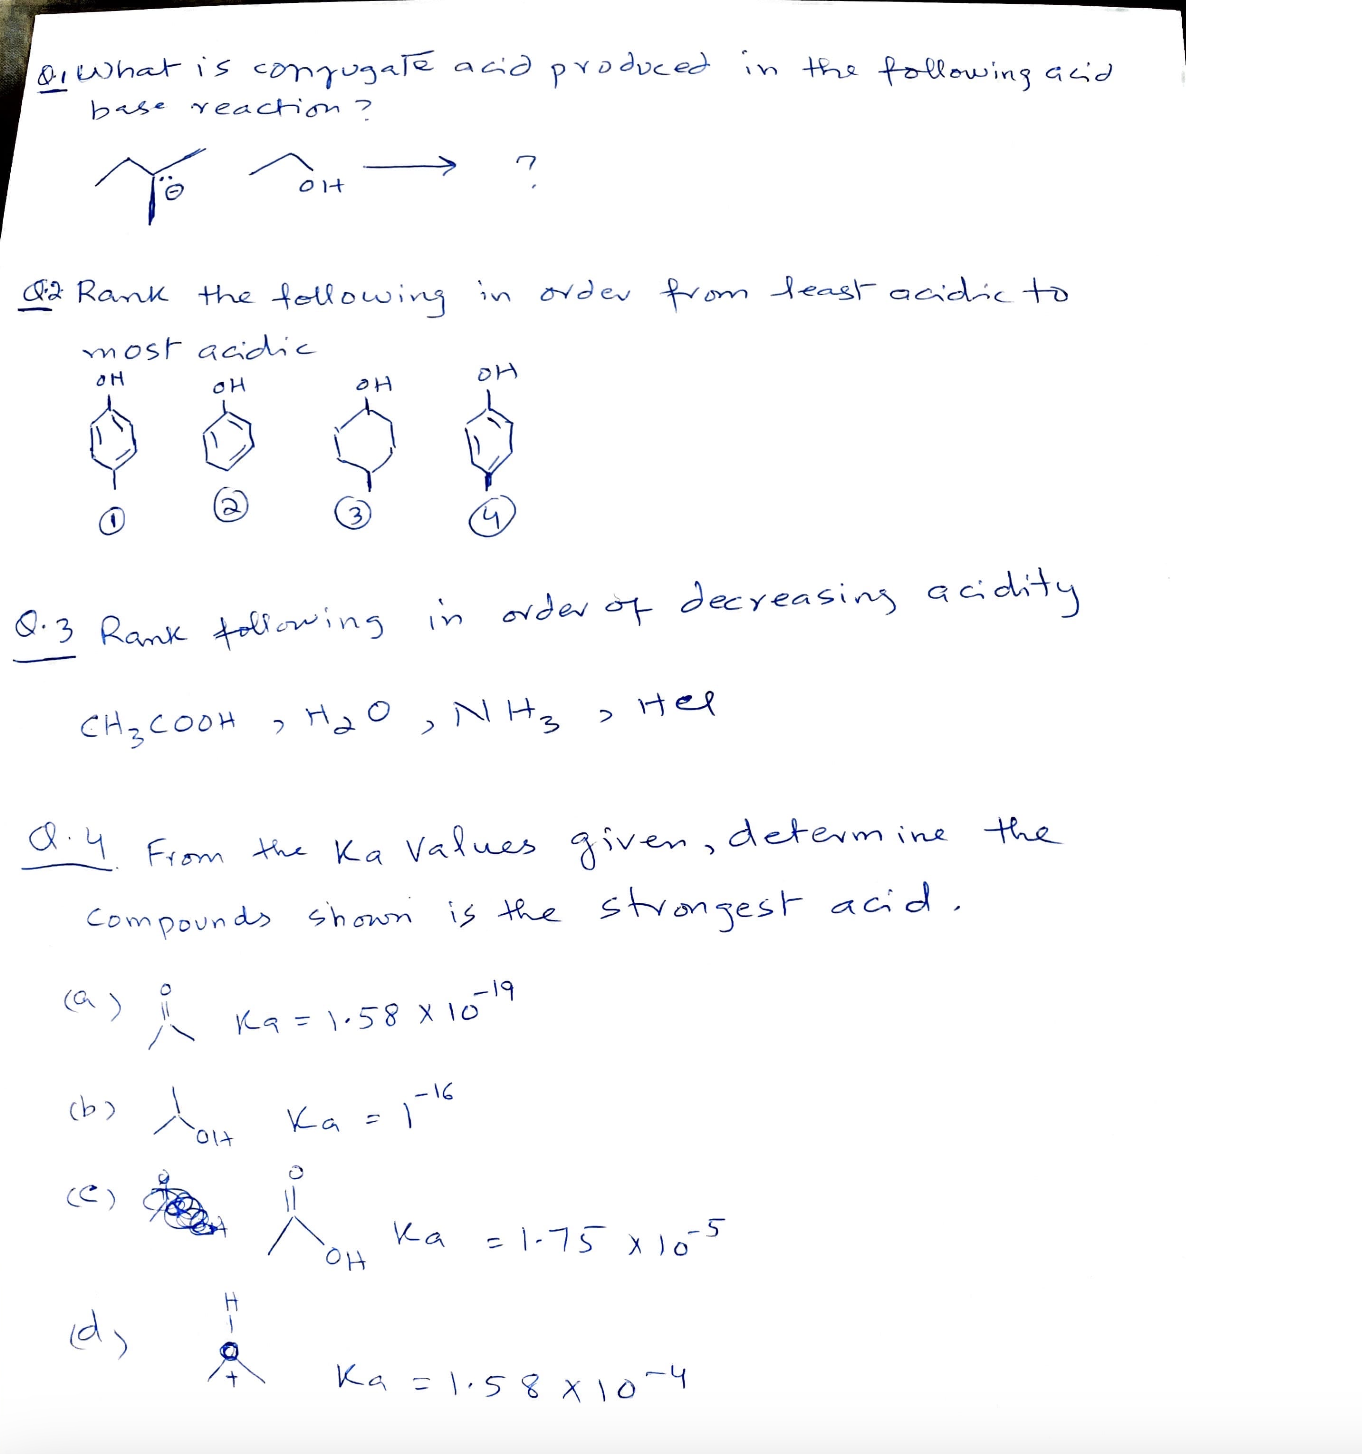 Q1 What is conjugate acid produced in the following acid
base reaction?
⊖ OH → ?
Q.2 Rank the following in order from least acidic to
most acidic
OH OH OH OH
① ② ③ ④
Q.3 Rank following in order of decreasing acidity
CH3COOH, H2O, NH3, HCl
Q.4 From the Ka values given, determine the
compounds shown is the strongest acid.
(a) O Ka = 1.58 × 10^-19
(b) OH Ka = 1^-16
(c) O OH Ka = 1.75 × 10^-5
(d) H O + Ka = 1.58 × 10^-4